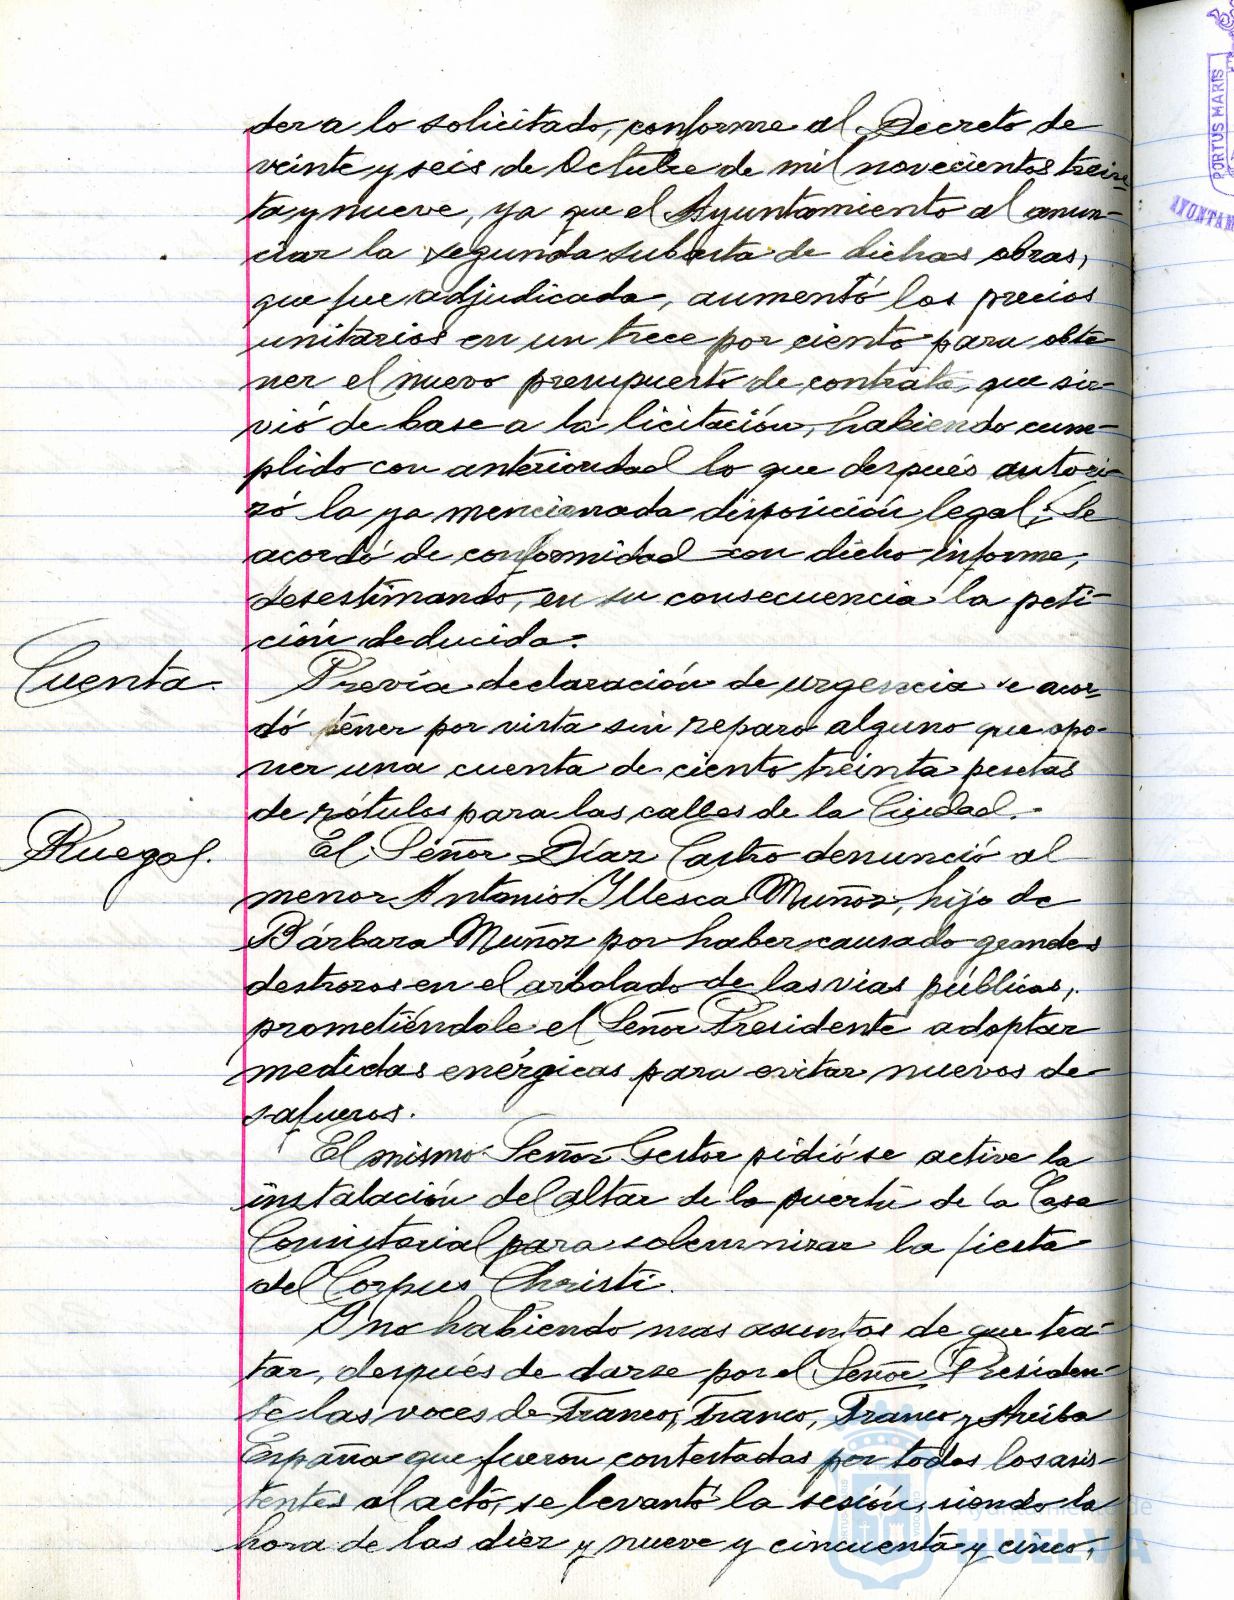 der a lo solicitado, conforme al Decreto de
veinte y seis de Octubre de mil novecientos trein-
ta y nueve, ya que el Ayuntamiento al anun-
ciar la segunda subasta de dichas obras,
que fue adjudicada, aumentó los precios
unitarios en un trece por ciento para obte-
ner el nuevo presupuesto de contrata que sir-
vió de base a la licitación, habiendo cum-
plido con anterioridad lo que después autori-
zó la ya mencionada disposición legal; Se
acordó de conformidad con dicho informe,
desestimando, en su consecuencia la peti-
ción deducida.
Cuenta.
Previa declaración de urgencia se acor-
dó tener por vista sin reparo alguno que opo-
ner una cuenta de ciento treinta pesetas
de rótulos para las calles de la Ciudad.-
Ruegos.
El Señor Díaz Castro denunció al
menor Antonio Yllesca Muñoz, hijo de
Bárbara Muñoz por haber causado grandes
destrozos en el arbolado de las vias públicas,
prometiéndole el Señor Presidente adoptar
medidas enérgicas para evitar nuevos de-
safueros.
El mismo Señor Gestor pidió se active la
instalación del altar de la puerta de la Casa
Consistorial para solemnizar la fiesta
del Corpus Christi.
Y no habiendo mas asuntos de que tra-
tar, después de darse por el Señor Presiden-
te las voces de Franco, Franco, Franco y Arriba
España que fueron contestadas por todos los asis-
tentes al acto, se levantó la sesión, siendo la
hora de las diez y nueve y cincuenta y cinco,
PORTUS MARIS
Ayuntamiento de
HUELVA